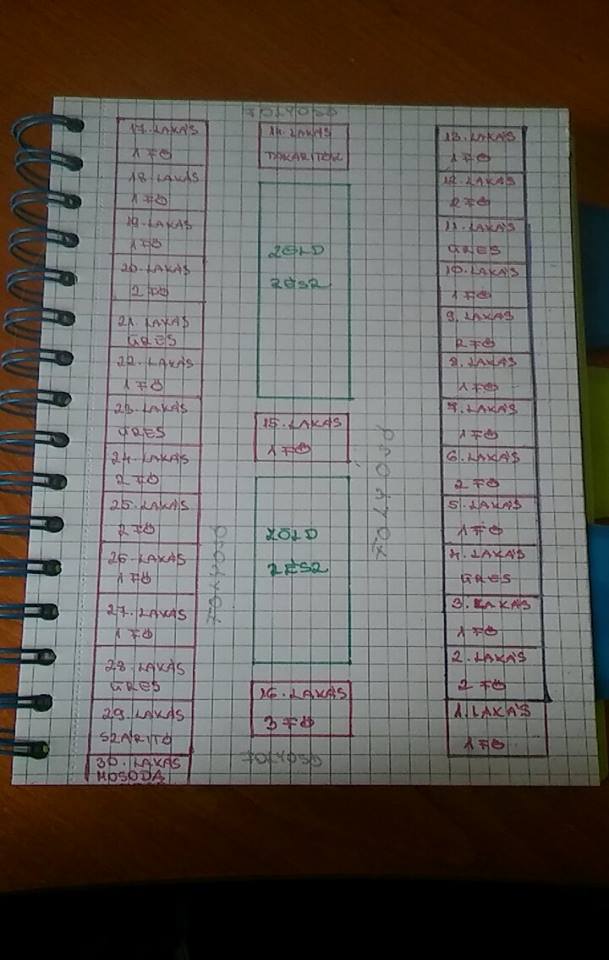 FOLYOSÓ
17. LAKÁS
1 FŐ
18. LAKÁS
1 FŐ
19. LAKÁS
1 FŐ
20. LAKÁS
2 FŐ
21. LAKÁS
ÜRES
22. LAKÁS
1 FŐ
23. LAKÁS
ÜRES
24. LAKÁS
2 FŐ
25. LAKÁS
2 FŐ
26. LAKÁS
1 FŐ
27. LAKÁS
1 FŐ
28. LAKÁS
ÜRES
29. LAKÁS
SZÁRÍTÓ
30. LAKÁS
MOSODA
FOLYOSÓ
14. LAKÁS
TAKARÍTÓK
ZÖLD
RÉSZ
15. LAKÁS
1 FŐ
ZÖLD
RÉSZ
16. LAKÁS
3 FŐ
FOLYOSÓ
FOLYOSÓ
13. LAKÁS
1 FŐ
12. LAKÁS
2 FŐ
11. LAKÁS
ÜRES
10. LAKÁS
1 FŐ
9. LAKÁS
2 FŐ
8. LAKÁS
1 FŐ
7. LAKÁS
1 FŐ
6. LAKÁS
2 FŐ
5. LAKÁS
1 FŐ
4. LAKÁS
ÜRES
3. LAKÁS
1 FŐ
2. LAKÁS
2 FŐ
1. LAKÁS
1 FŐ